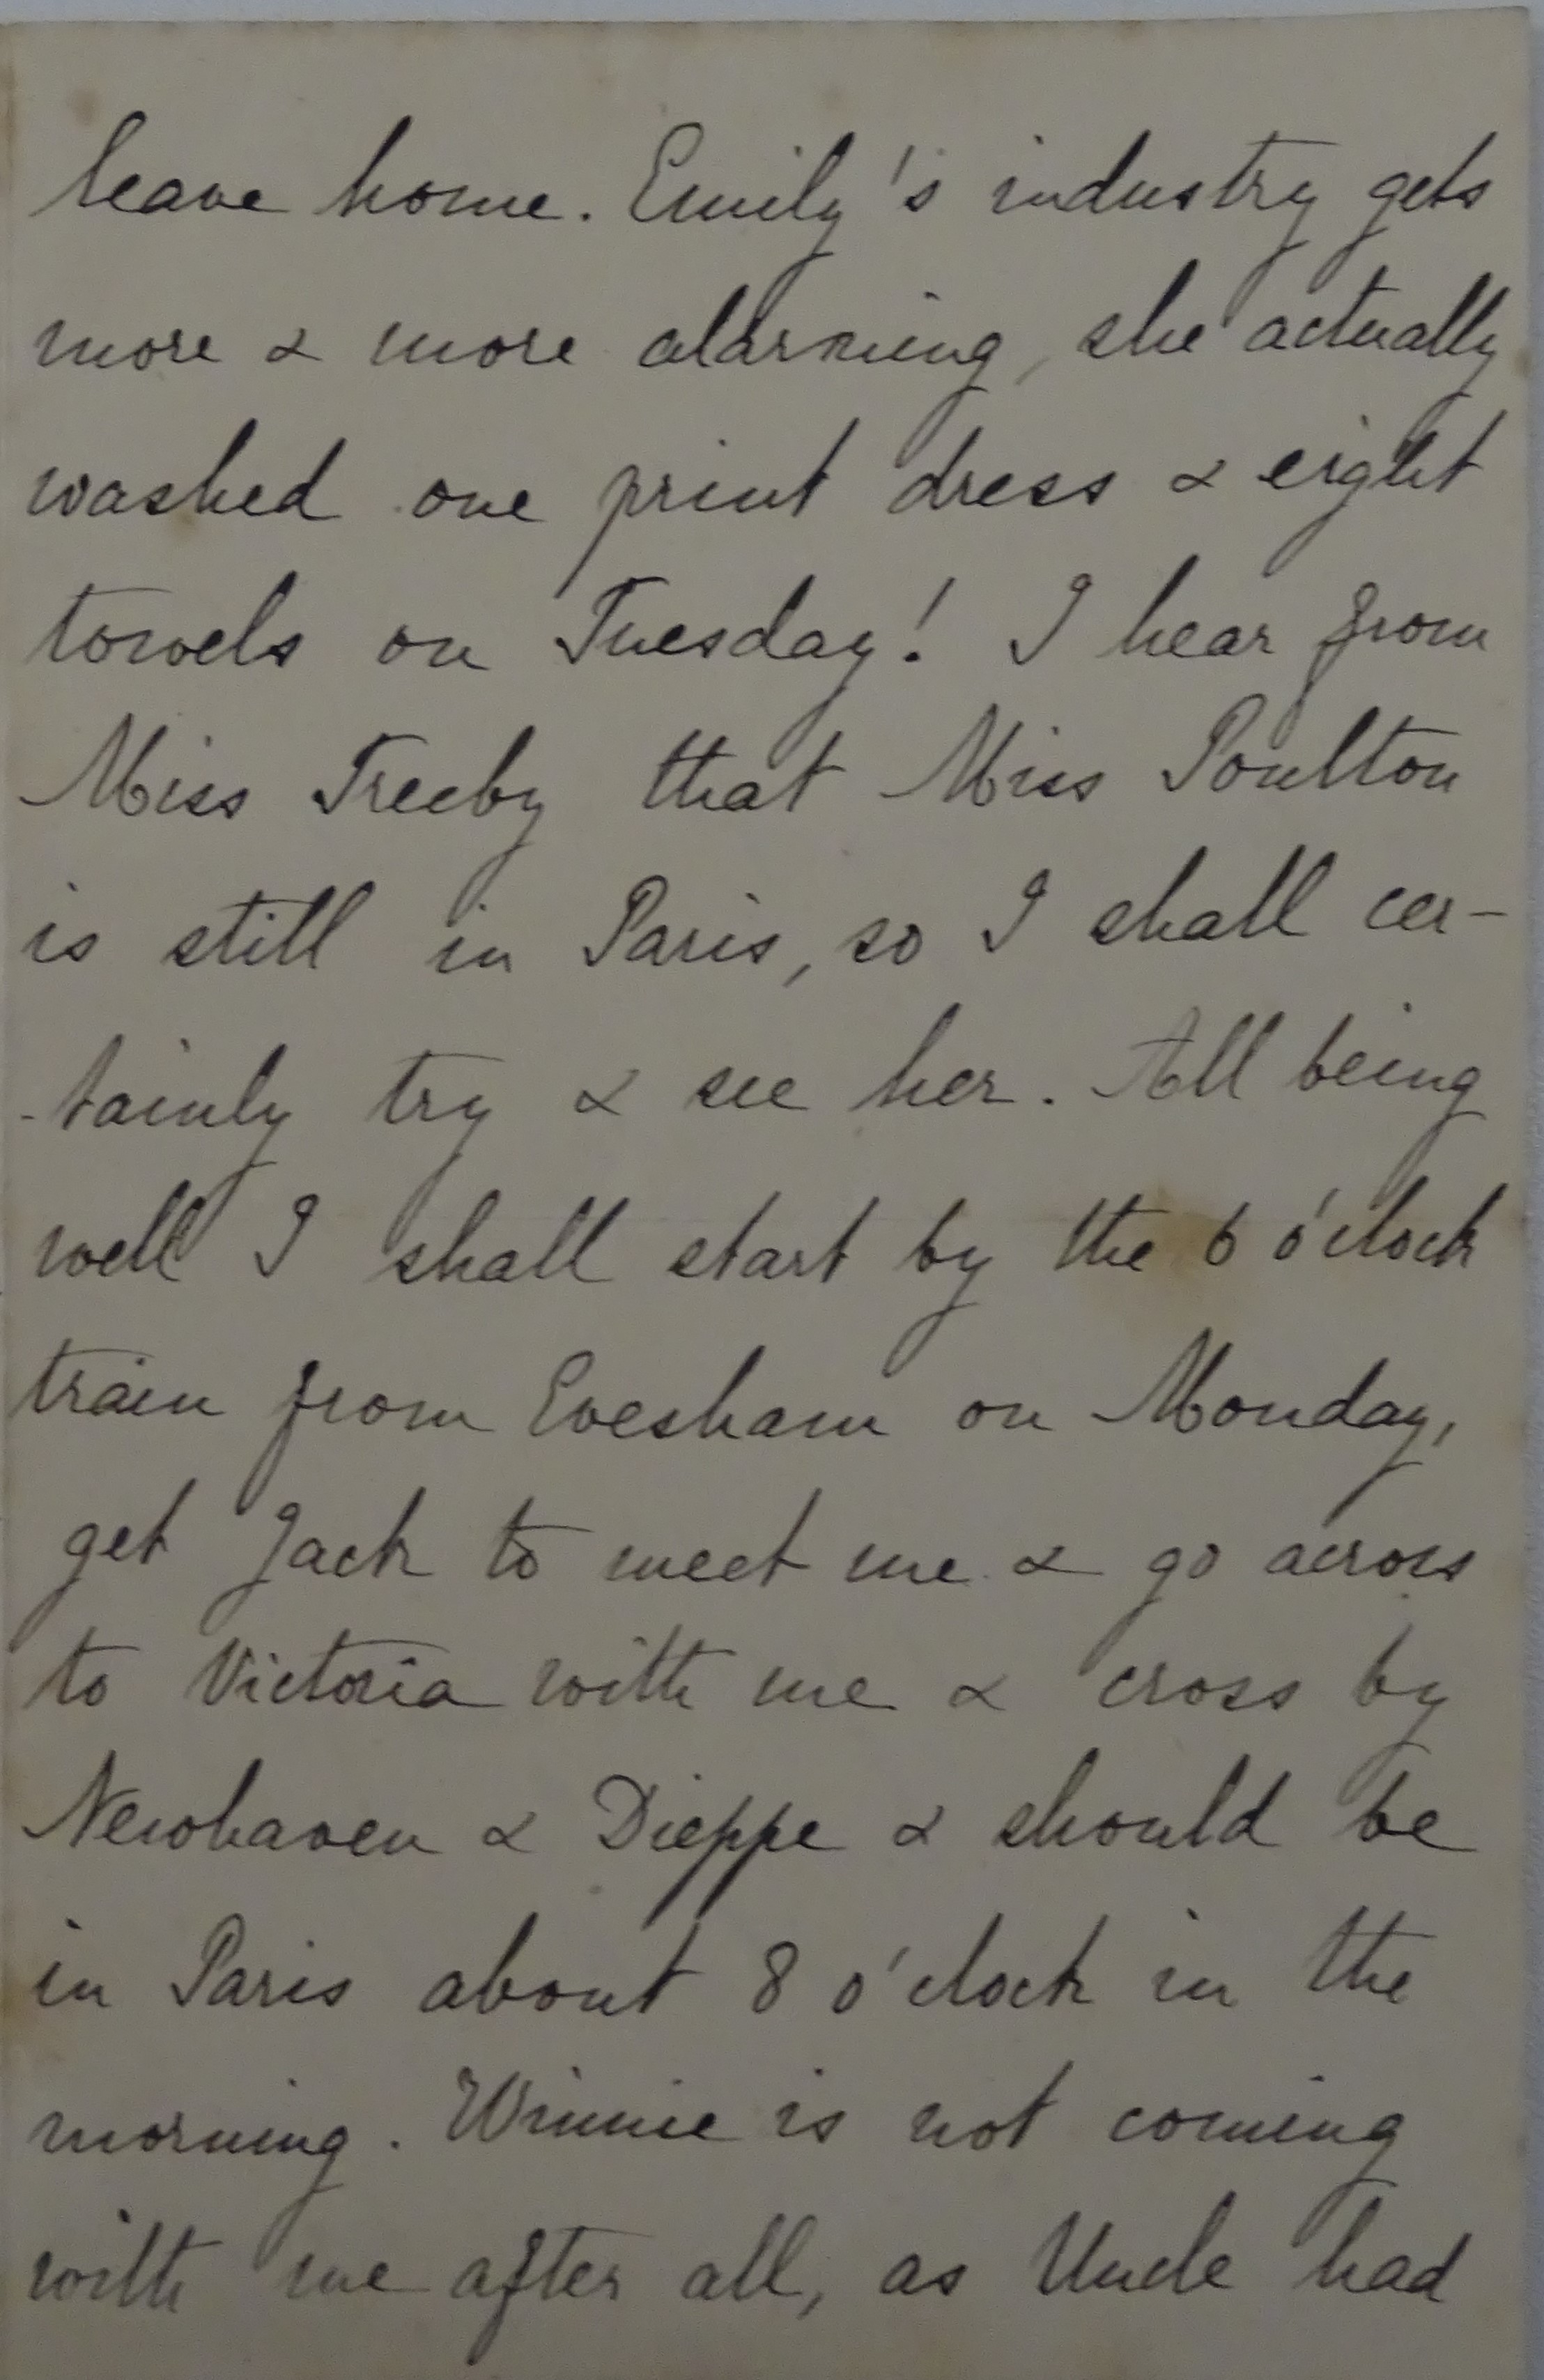 leave home. Emily's industry gets
more & more alarming, she actually
washed one print dress & eight
towels on Tuesday! I hear from
Miss Treeby that Miss Poulton
is still in Paris, so I shall cer-
-tainly try & see her. All being
well I shall start by the 6 o'clock
train from Evesham on Monday,
get Jack to meet me & go across
to Victoria with me & cross by
Newhaven & Dieppe & should be
in Paris about 8 o'clock in the
morning. Winnie is not coming
with me after all, as Uncle had